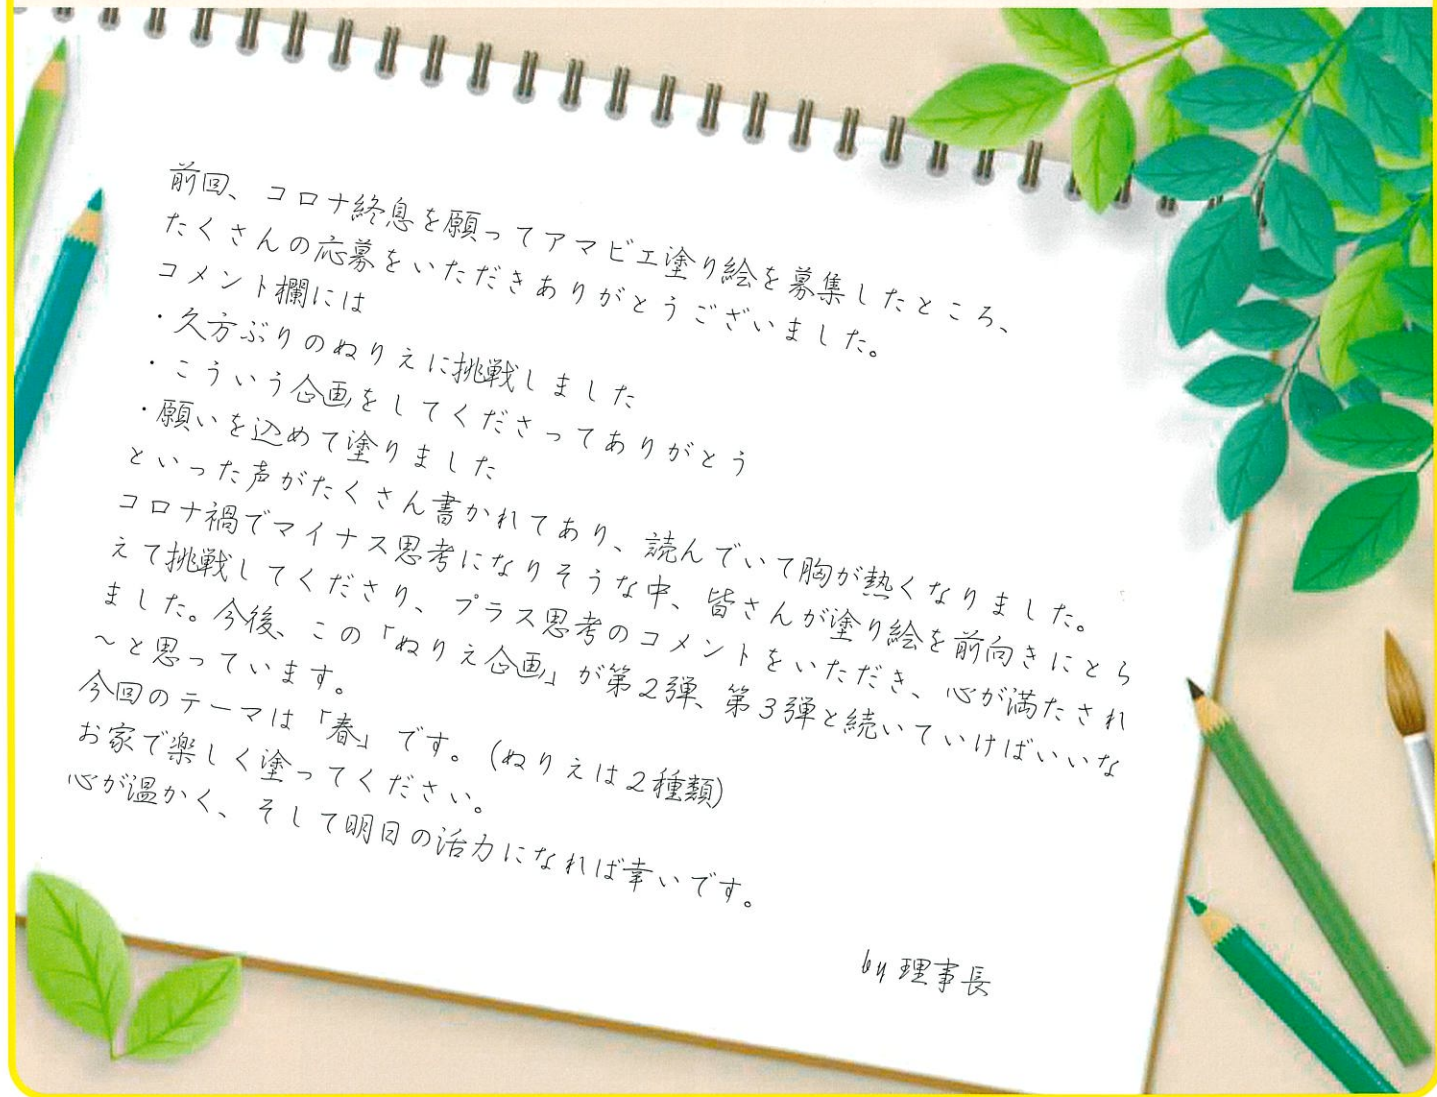 前回、コロナ終息を願ってアマビエ塗り絵を募集したところ、
たくさんの応募をいただきありがとうございました。
コメント欄には
・久方ぶりのぬりえに挑戦しました
・こういう企画をしてくださってありがとう
・願いを込めて塗りました
といった声がたくさん書かれてあり、読んでいて胸が熱くなりました。
コロナ禍でマイナス思考になりそうな中、皆さんが塗り絵を前向きにとら
えて挑戦してくださり、プラス思考のコメントをいただき、心が満たされ
ました。今後、この「ぬりえ企画」が第2弾、第3弾と続いていけばいいな
～と思っています。
今回のテーマは「春」です。(ぬりえは2種類)
お家で楽しく塗ってください。
心が温かく、そして明日の活力になれば幸いです。
by 理事長